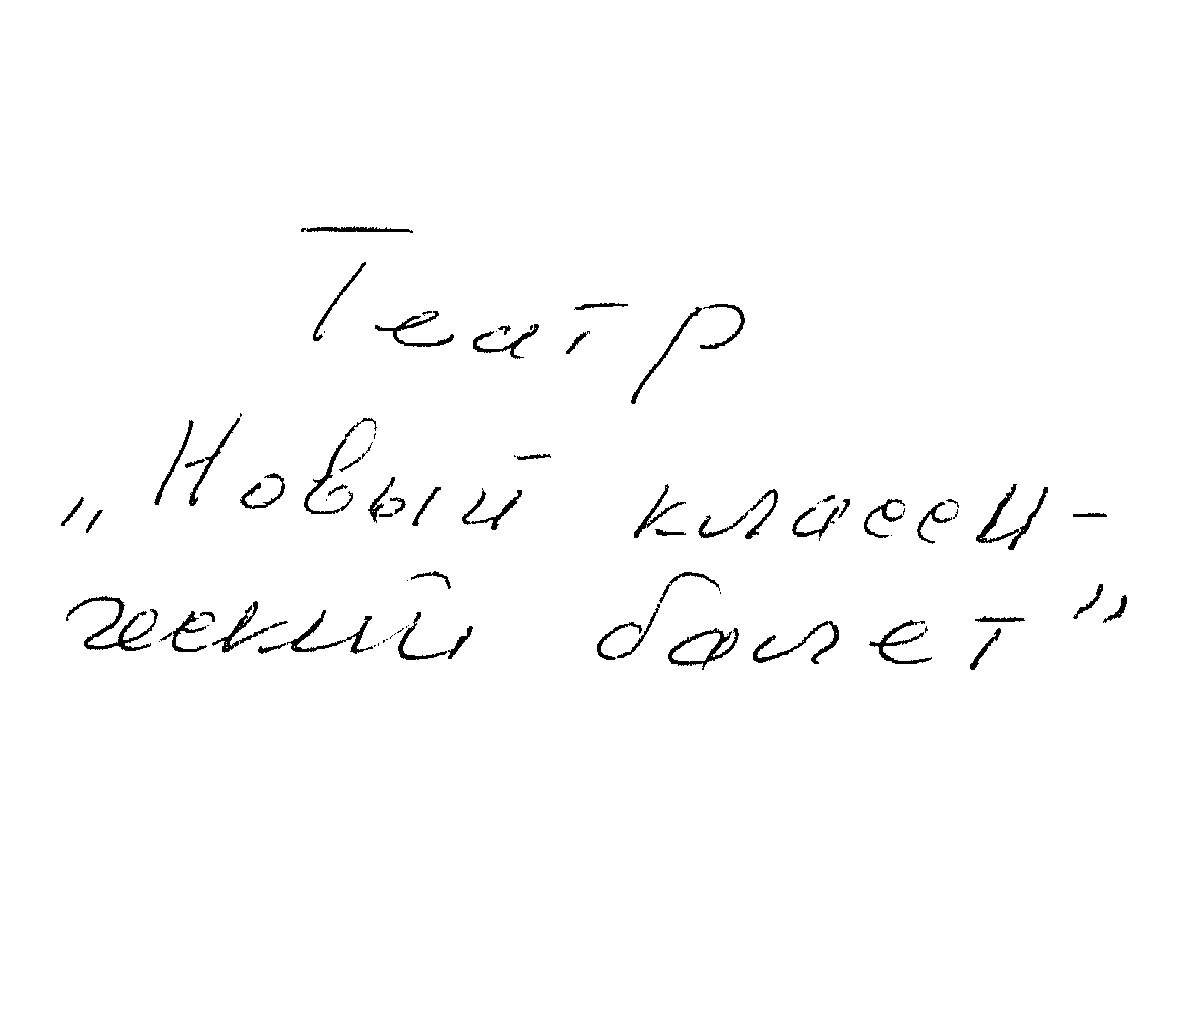 Театр
„Новый класси-
ческий балет”